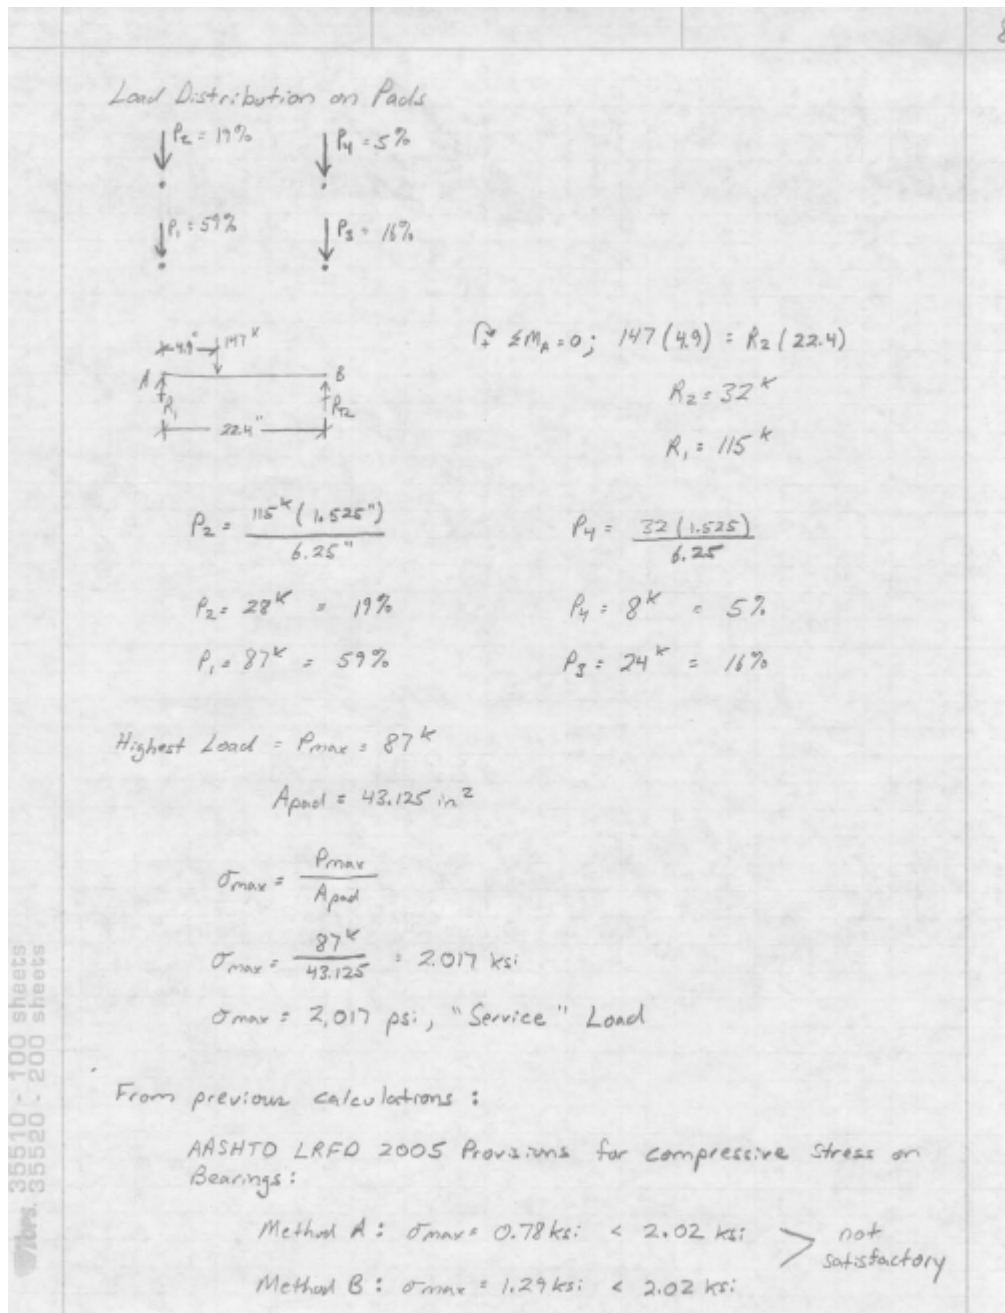 8
Load Distribution on Pads
P2 = 19% P4 = 5%
P1 = 59% P3 = 16%
4.9" 147 K
A B
R1 R2
22.4"
+ ΣMA = 0; 147 (4.9) = R2 (22.4)
R2 = 32 K
R1 = 115 K
P2 = 115 K (1.525") / 6.25"
P2 = 28 K = 19%
P1 = 87 K = 59%
P4 = 32 (1.525) / 6.25
P4 = 8 K = 5%
P3 = 24 K = 16%
Highest Load = Pmax = 87 K
Apad = 43.125 in²
σmax = Pmax / Apad
σmax = 87 K / 43.125 = 2.017 ksi
σmax = 2,017 psi, "Service" Load
From previous calculations :
AASHTO LRFD 2005 Provisions for compressive Stress on
Bearings :
Method A : σmax = 0.78 ksi < 2.02 ksi
Method B : σmax = 1.29 ksi < 2.02 ksi
> not
satisfactory
35510 - 100 sheets
35520 - 200 sheets